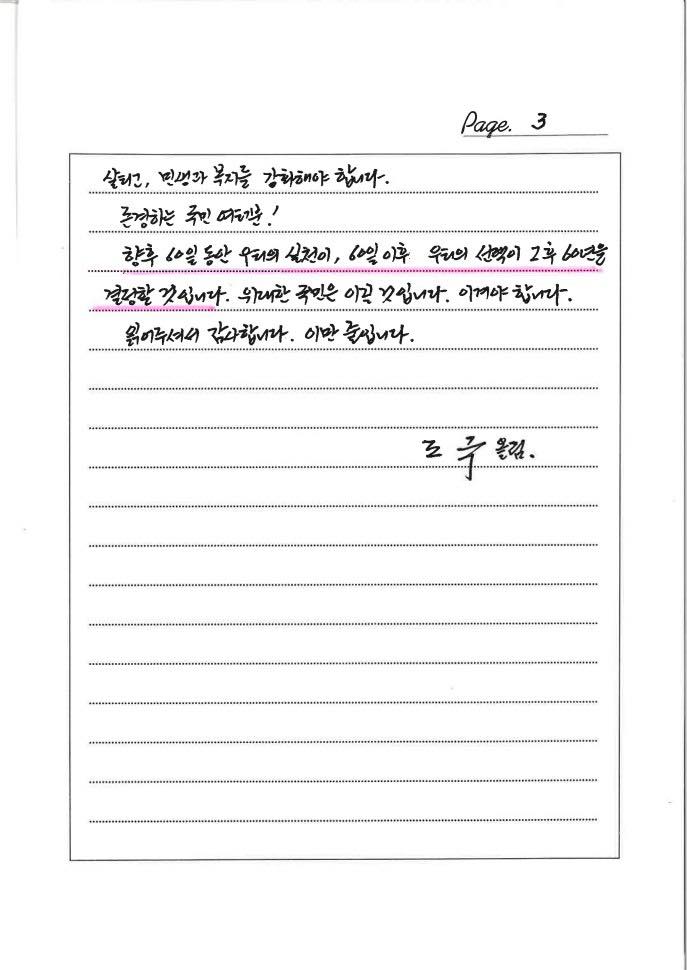 Page. 3
살리고, 민생과 복지를 강화해야 합니다.
존경하는 국민 여러분!
향후 60일 동안 우리의 실천이, 60일 이후 우리의 선택이 그 후 60년을
결정할 것입니다. 위대한 국민은 이길 것입니다. 이겨야 합니다.
읽어주셔서 감사합니다. 이만 줄입니다.
조 국 올림.